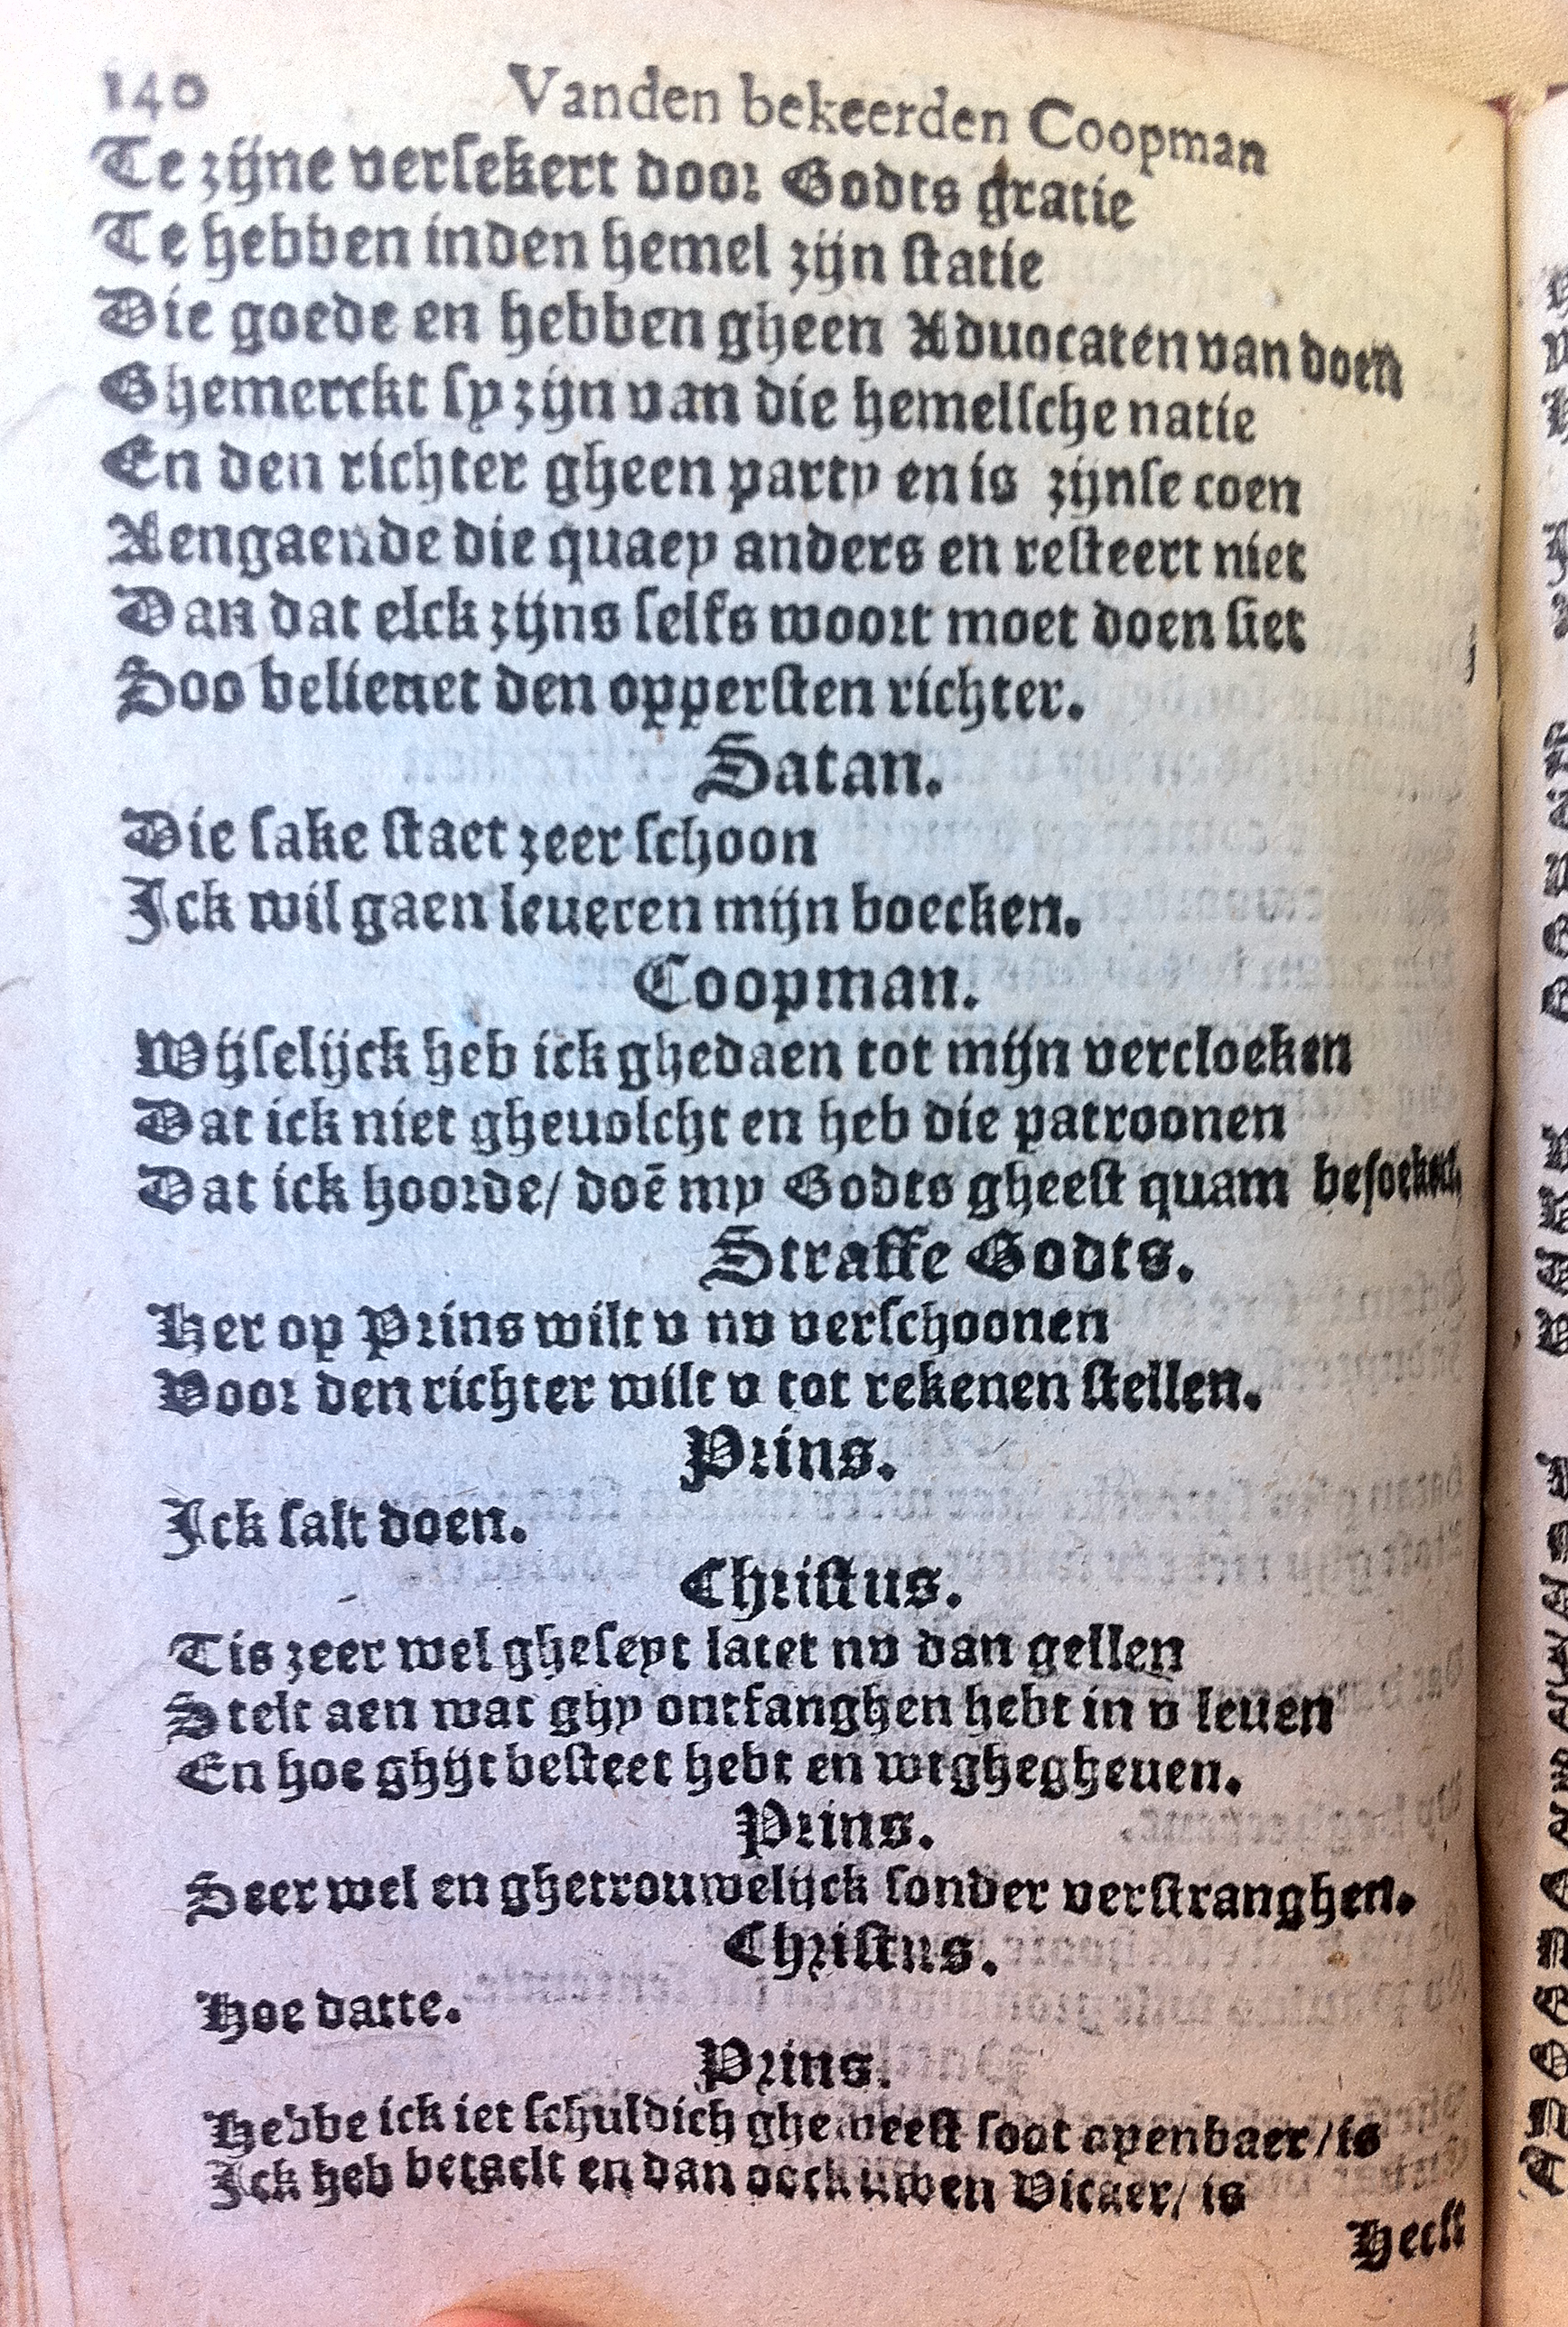 140 Vanden bekeerden Coopman
Te zijne versekert door Godts gratie
Te hebben inden hemel zijn statie
Die goede en hebben gheen Aduocaten van doen
Ghemerckt sy zijn van die hemelsche natie
En den richter gheen party en is zijnse coen
Aengaende die quaey anders en resteert niet
Dan dat elck zijns selfs woort moet doen siet
Soo belieuet den oppersten richter.
Satan.
Die sake staet zeer schoon
Ick wil gaen leueren mijn boecken.
Coopman.
Wijselijck heb ick ghedaen tot mijn vercloeken
Dat ick niet gheuolcht en heb die patroonen
Dat ick hoorde/ doē my Godts gheest quam besoeken
Straffe Godts.
Her op Prins wilt v nv verschoonen
Voor den richter wilt v tot rekenen stellen.
Prins.
Ick salt doen.
Christus.
Tis zeer wel gheseyt latet nv dan gellen
Stelt aen wat ghy ontfanghen hebt in v leuen
En hoe ghijt besteet hebt en wtghegheuen.
Prins.
Seer wel en ghetrouwelijck sonder verstranghen.
Christus.
Hoe datte.
Prins.
Hebbe ick iet schuldich gheweest soot openbaer/is
Ick heb betaelt en dan oock uwen Vicaer/ is